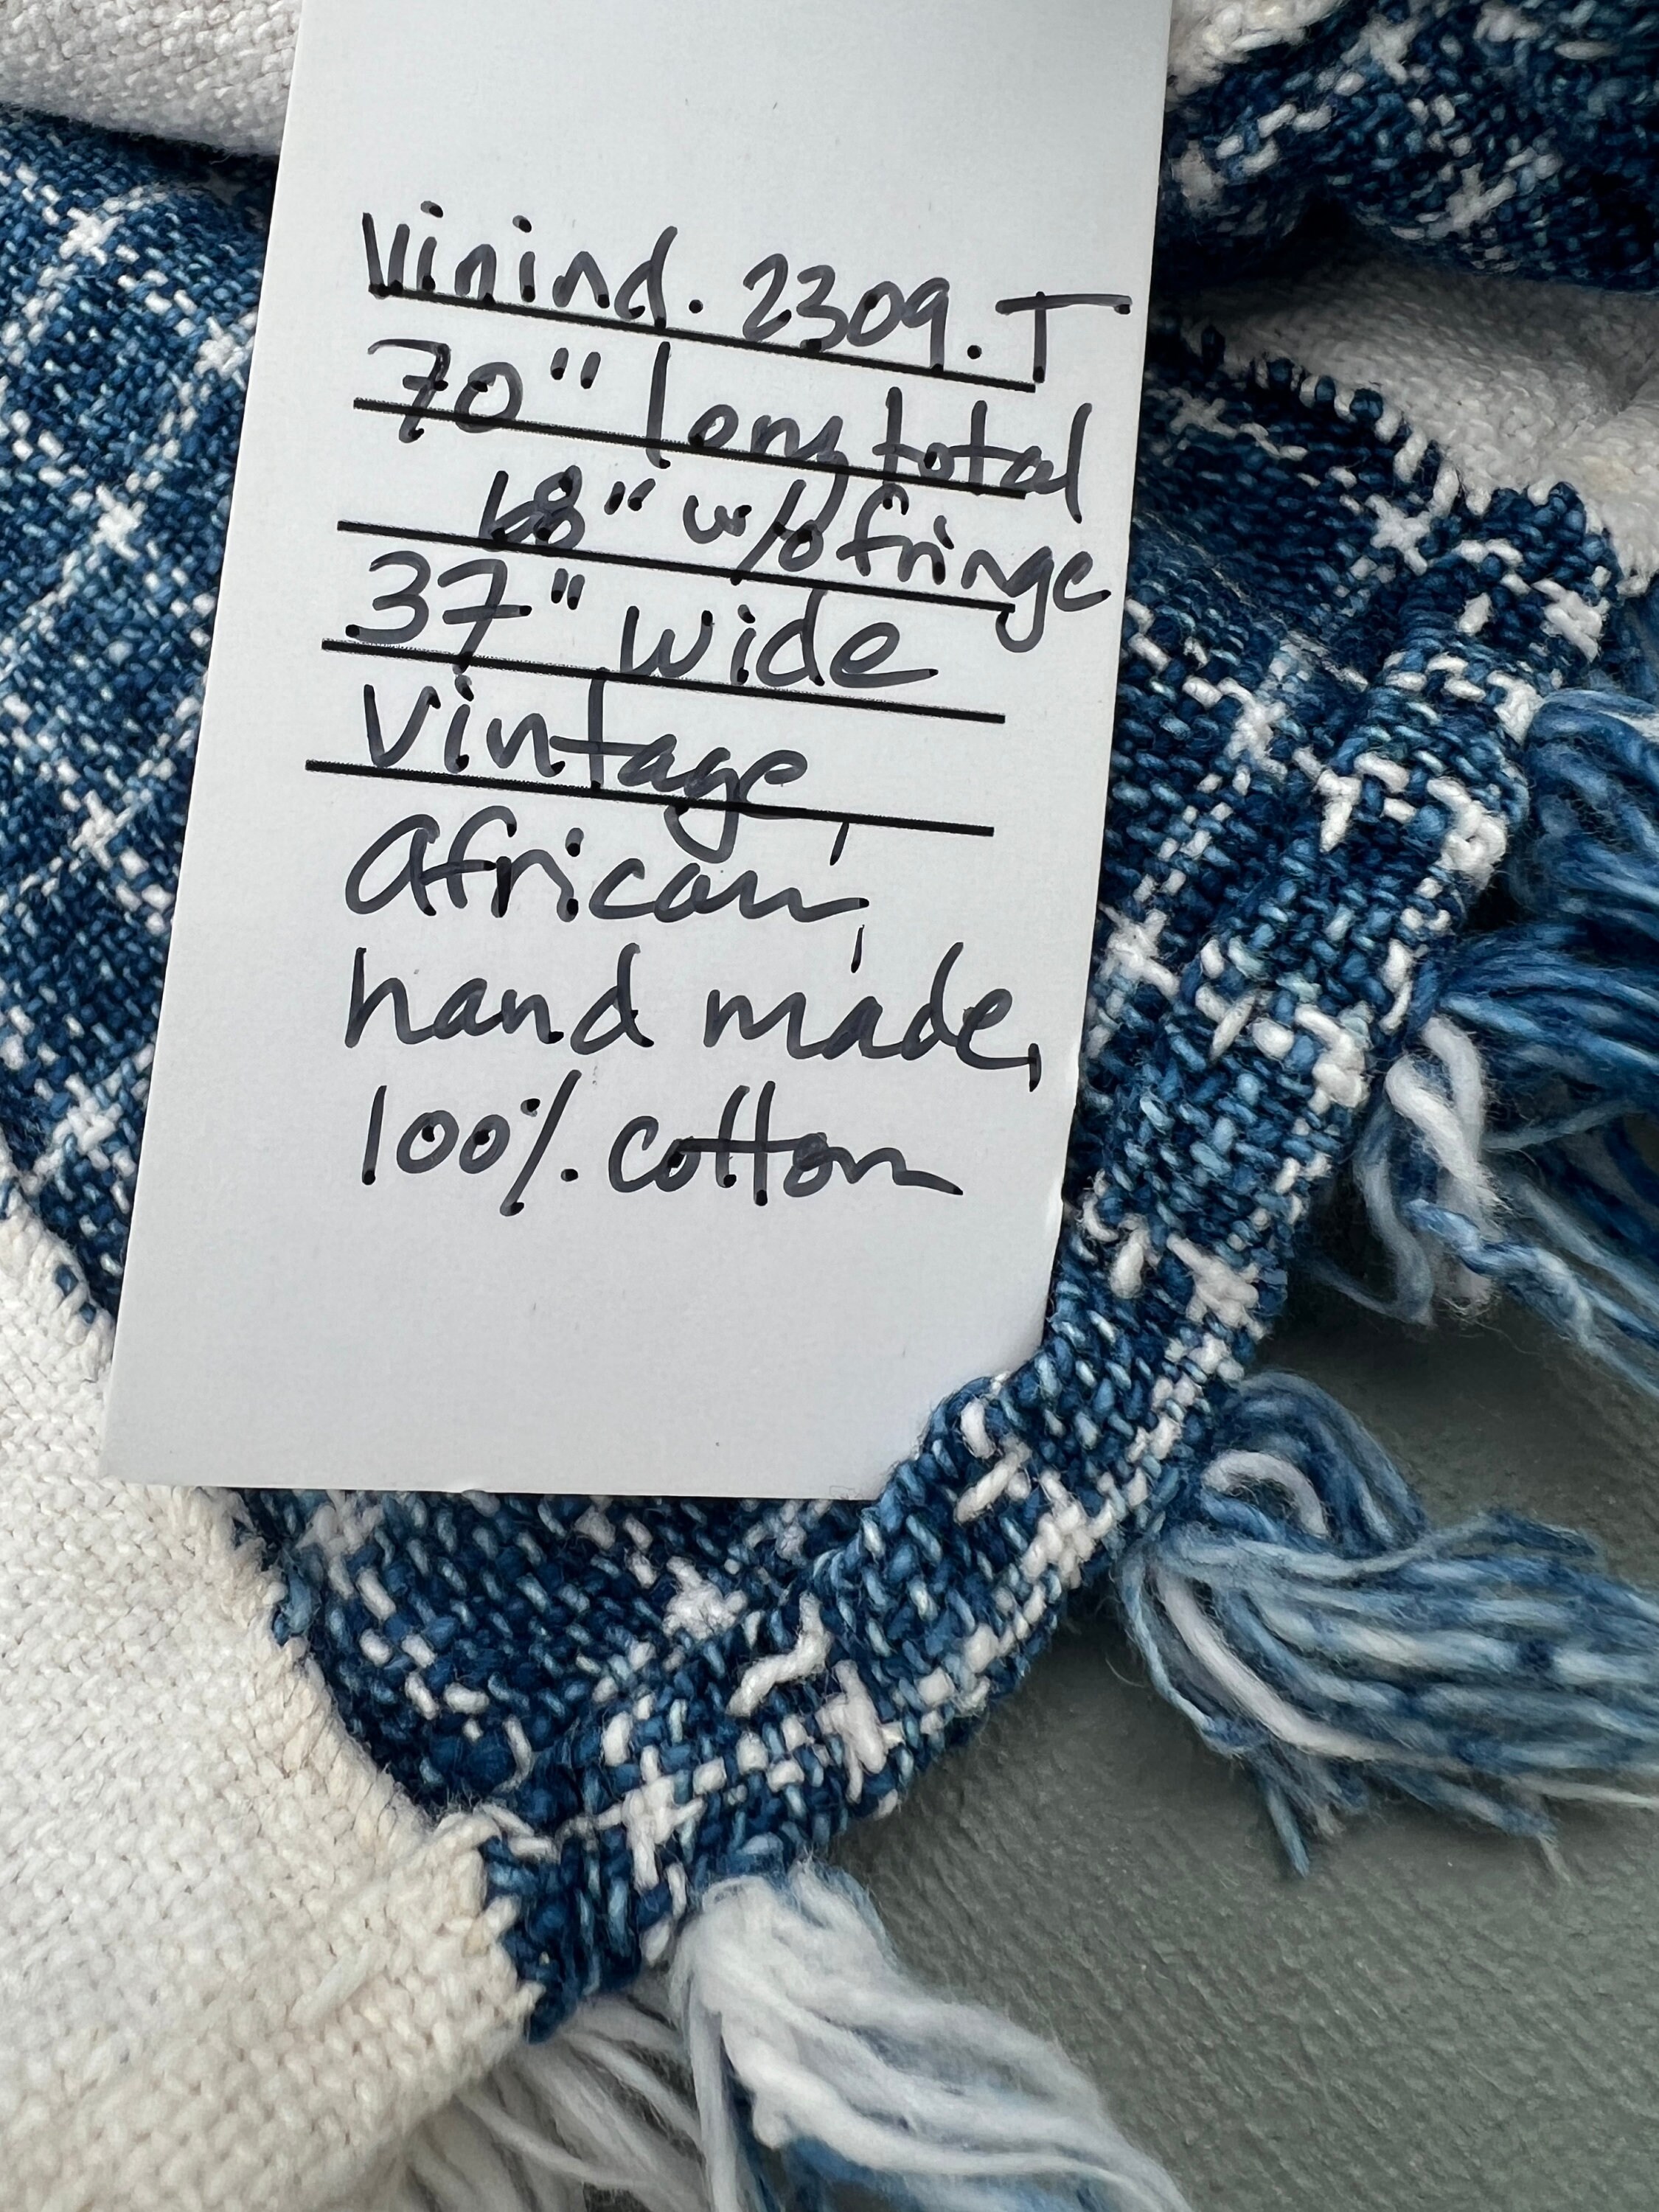 Vinind. 2309.T
70" long total
68" w/o fringe
37" wide
Vintage,
African,
hand made,
100% cotton